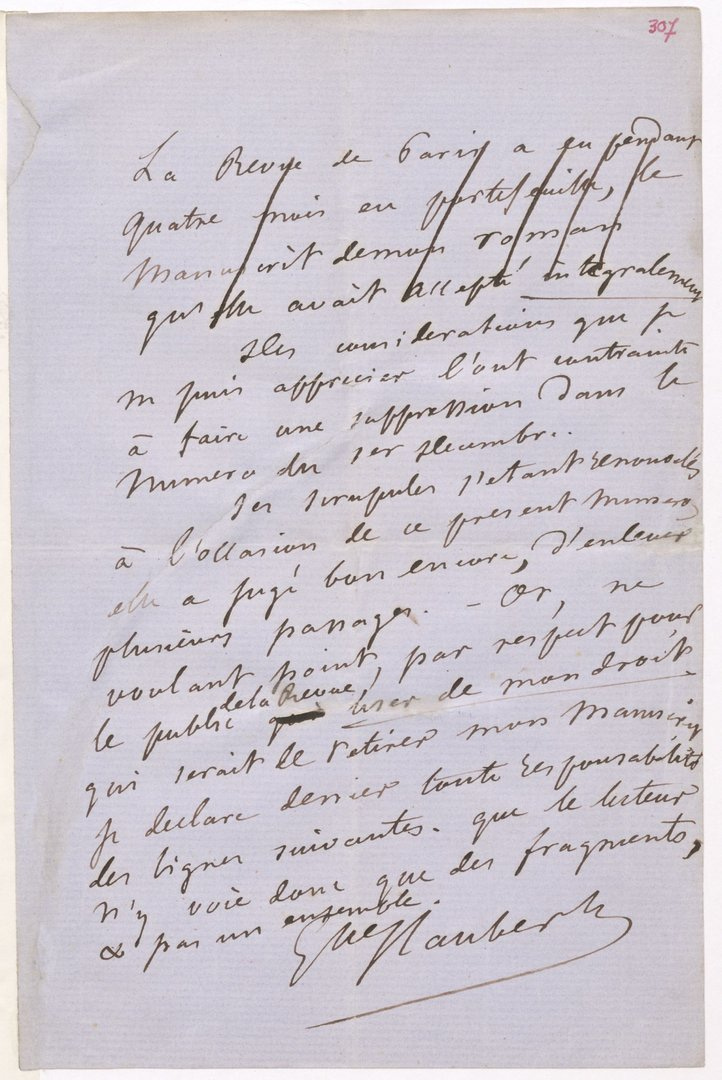 307
La Revue de Paris a eu pendant
quatre mois en portefeuille, le
manuscrit de mon roman
qu'elle avait accepté intégralement
Des considérations que je
n puis apprécier l'ont contrainte
à faire une suppression dans le
numéro du 1er Décembre.
ses scrupules s'étant renouvelés
à l'occasion de ce présent numéro,
elle a jugé bon encore, d'enlever
plusieurs passages. - Or, ne
voulant point, par respect pour
le public de la Revue user de mon droit
qui serait de retirer mon manuscrit
je declare denier toute responsabilité
des lignes suivantes. que le lecteur
n'y voie donc que des fragments,
& pas un ensemble.
Gve Flaubert